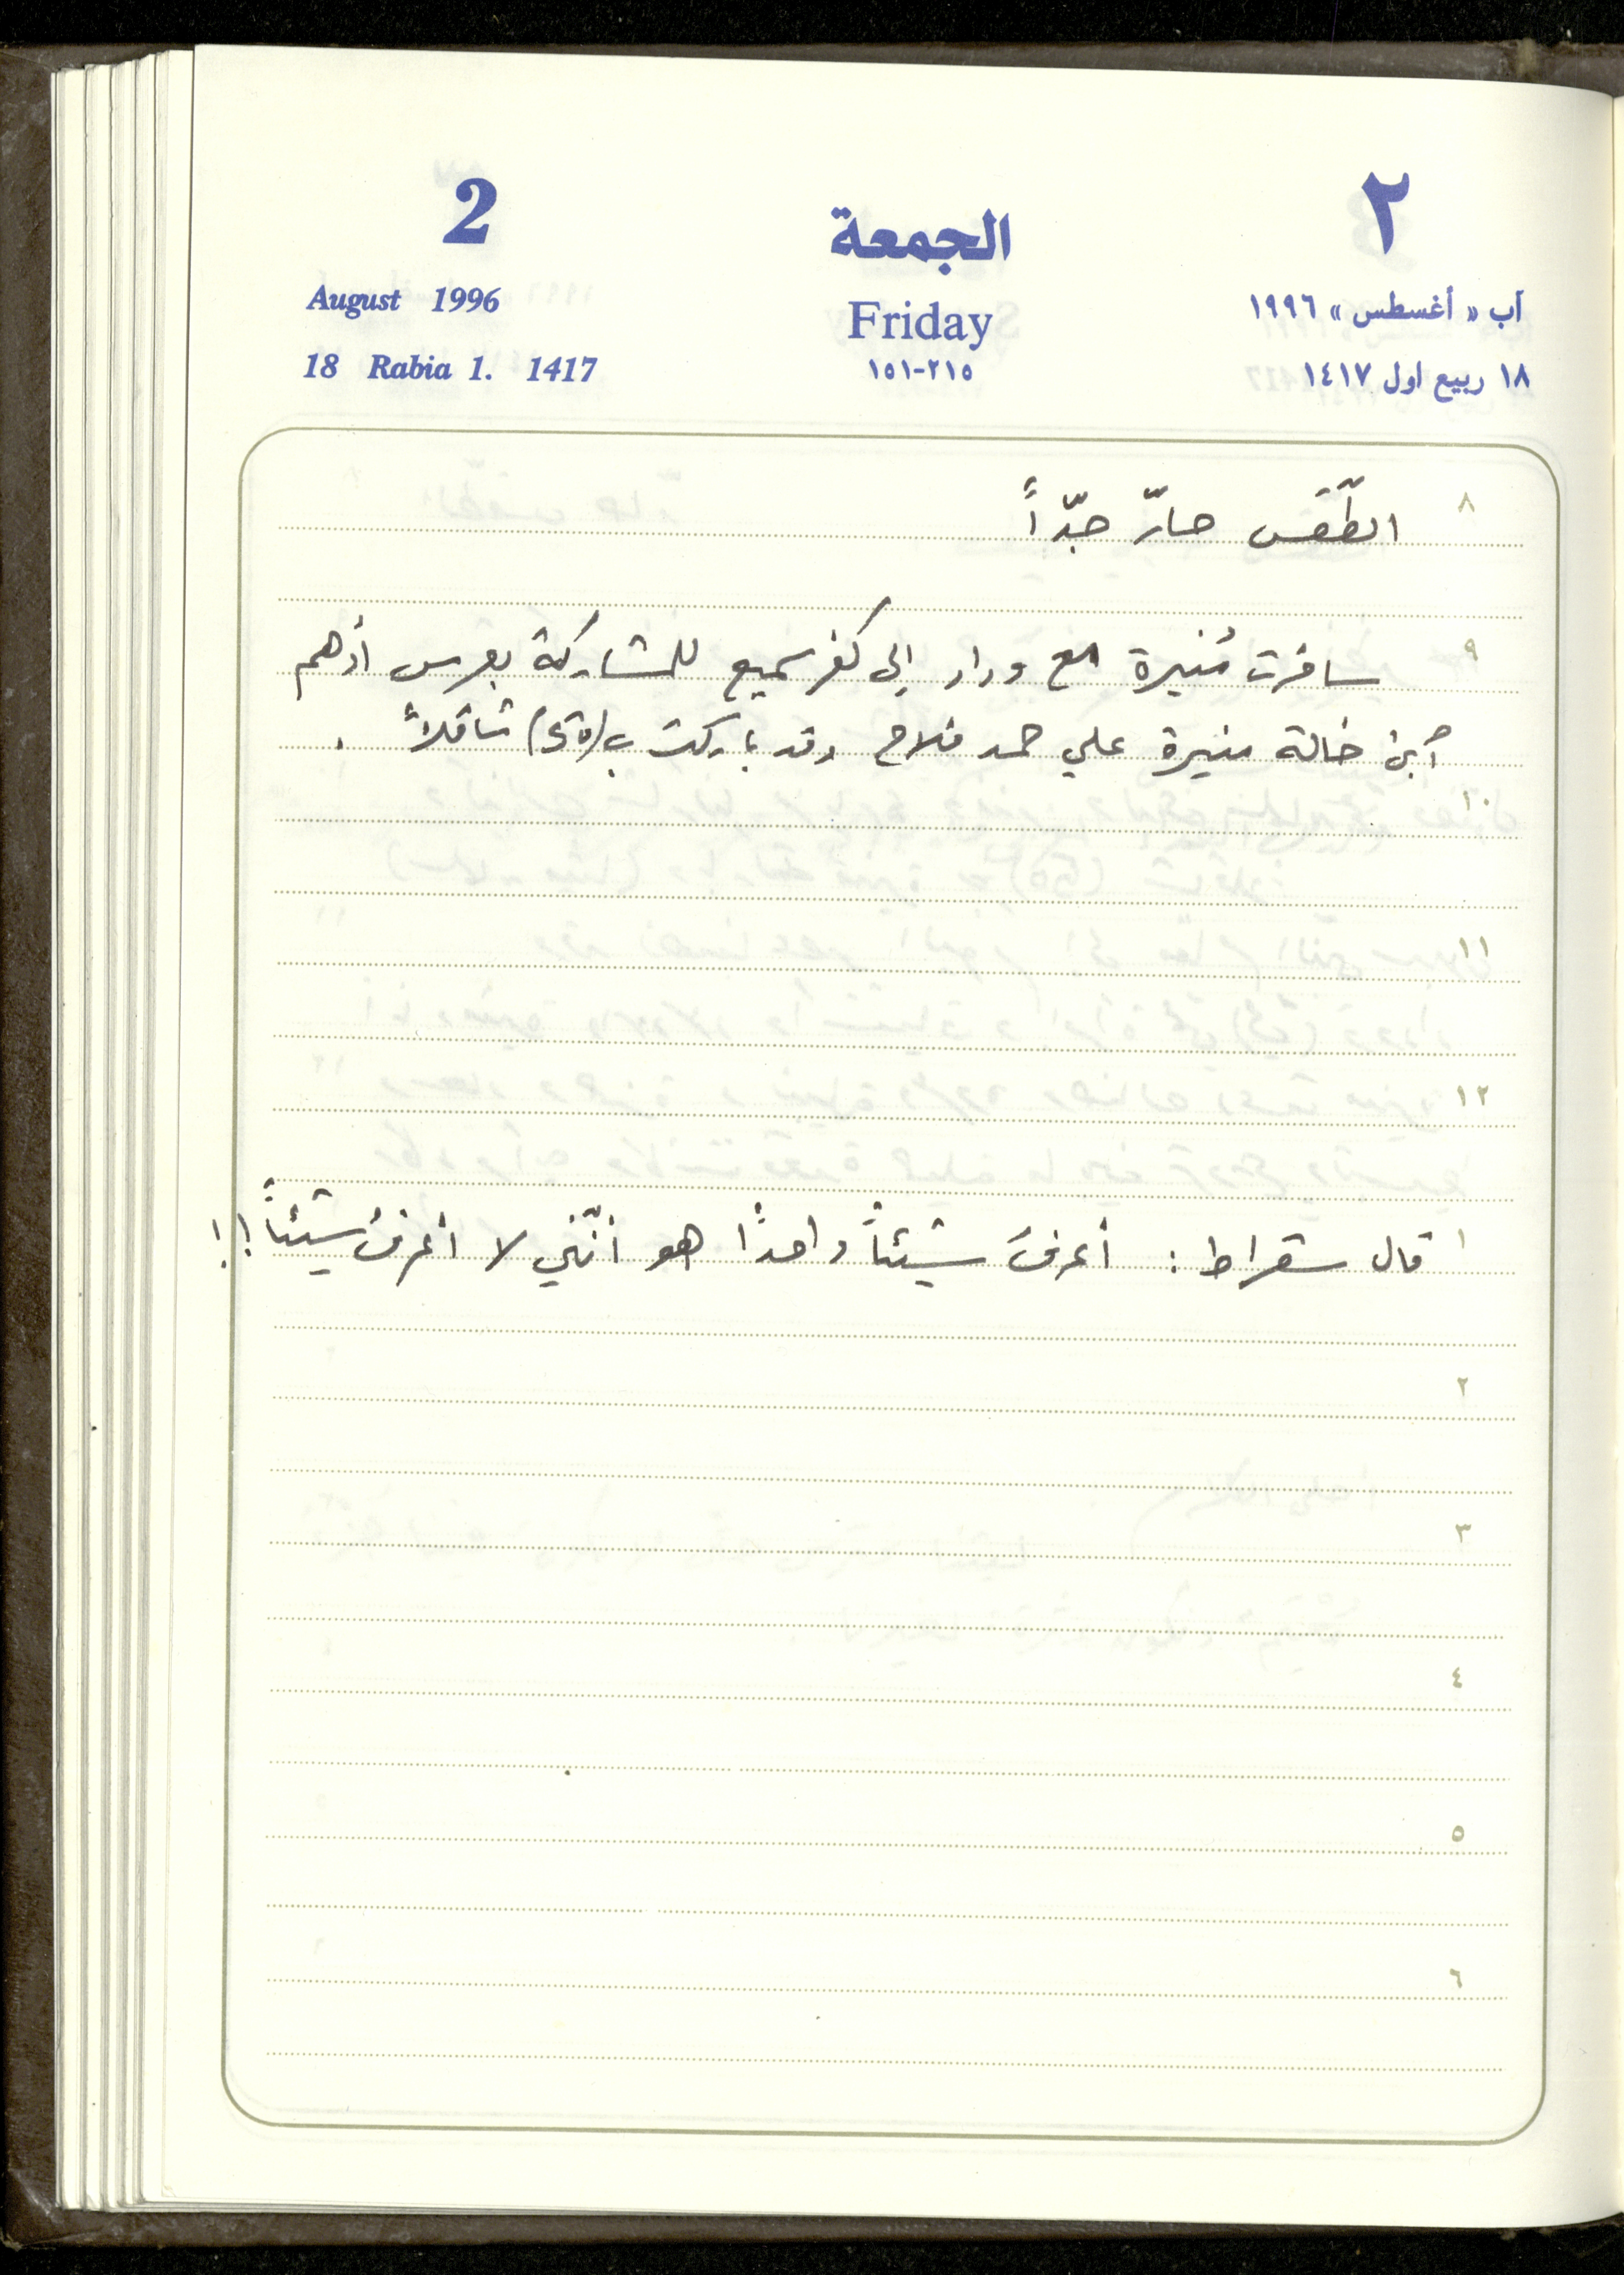 2 الجمعة ٢
August 1996 Friday آب « أغسطس » ١٩٩٦
18 Rabia 1. 1417 ٢١٥-١٥١ ١٨ ربيع اول ١٤١٧
٨ الطّقس حارّ جدّاً
٩ سافرت مُنيرة مع وداد إلى كفرسميع للمشاركة بعرس أدهم
أبن خالة منيرة علي حمد فلاح وقد باركت ب(50) شاقلاً .
١٠
١١
١٢
١ قال سقراط : أعرفُ شيئاً واحداً هو أنّني لا أعرفُ شيئاً!!
٢
٣
٤
٥
٦